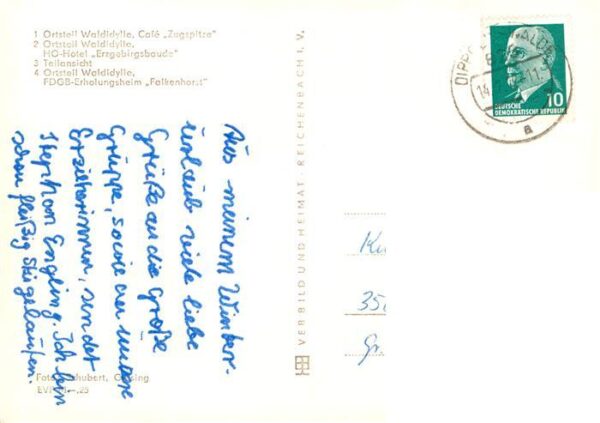 1 Ortsteil Waldidylle, Café „Zugspitze"
2 Ortsteil Waldidylle,
HO-Hotel „Erzgebirgsbaude"
3 Teilansicht
4 Ortsteil Waldidylle,
FDGB-Erholungsheim „Falkenhorst"
Aus meinem Winter-
urlaub viele liebe
Grüße an die große
Gruppe, sowie an unsere
Erzieherinnen, sendet
Stephan Engling. Ich bin
schon fleißig Ski gelaufen.
Foto: Schubert, Geising
VERB BILD UND HEIMAT · REICHENBACH I. V.
DIPP
14.
a
10
DEUTSCHE
DEMOKRATISCHE REPUBLIK
35
Gr.